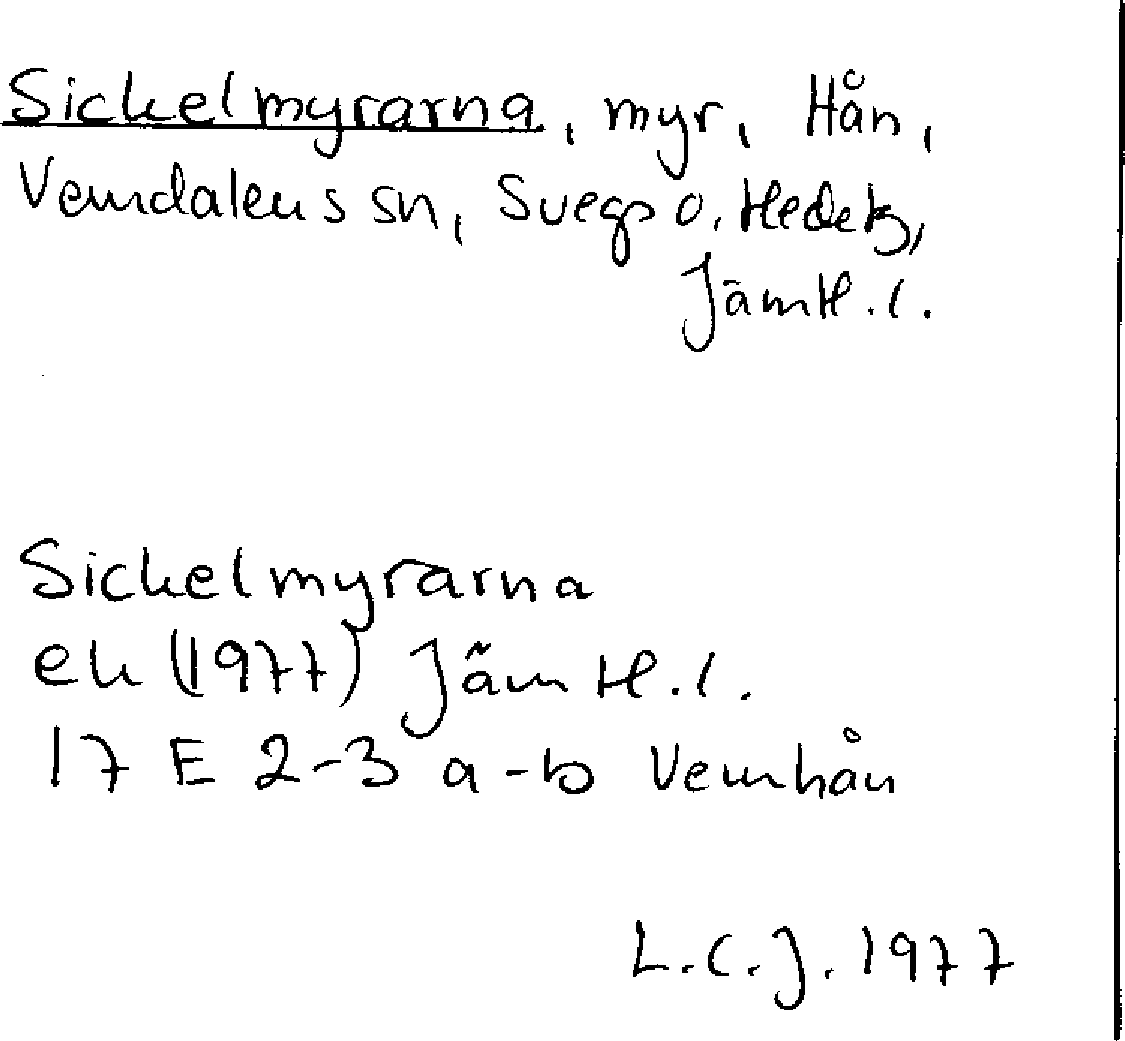 Sickelmyrarna, myr, Hån,
Vemdalens sn, Svegs o. Hede tg,
Jämtl. l.
Sickelmyrarna
ek (1977) Jämtl. l.
17 E 2-3 a-b Vemhån
L.C.J. 1977